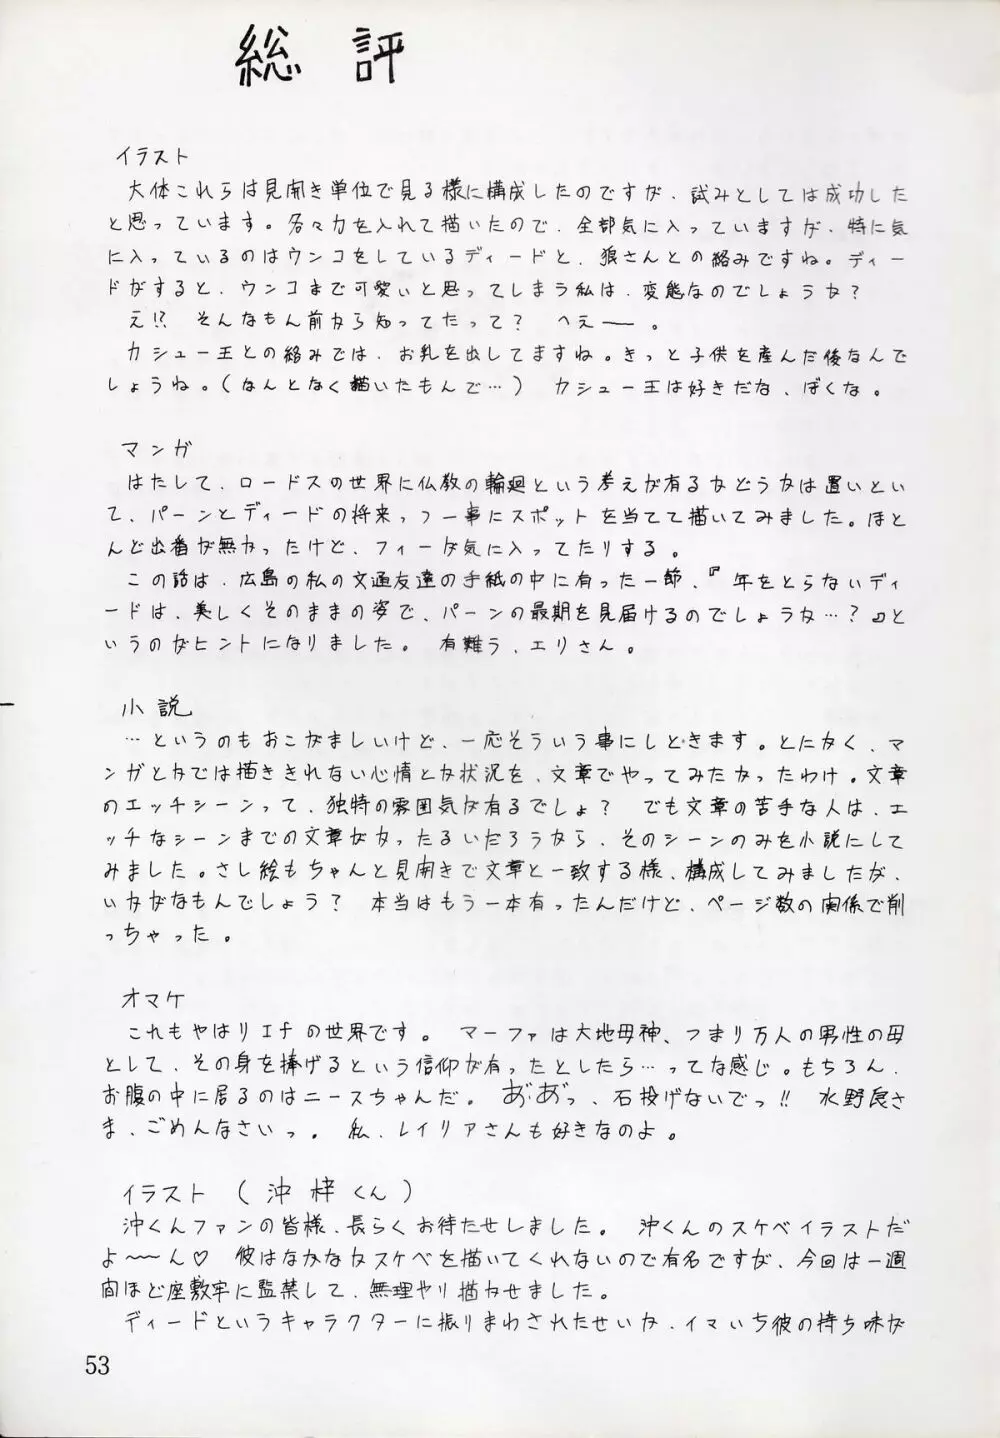 総評
イラスト
大体これらは見開き単位で見る様に構成したのですが、試みとしては成功した
と思っています。各々力を入れて描いたので、全部気に入っていますが、特に気
に入っているのはウンコをしているディードと、狼さんとの絡みですね。ディー
ドがすると、ウンコまで可愛いと思ってしまう私は、変態なのでしょうか?
え!? そんなもん前から知ってたって? へえー。
カシュー王との絡みでは、お乳を出してますね。きっと子供を産んだ後なんで
しょうね。(なんとなく描いたもんで…) カシュー王は好きだな、ぼくな。
マンガ
はたして、ロードスの世界に仏教の輪廻という考えが有るかどうかは置いとい
て、パーンとディードの将来っつー事にスポットを当てて描いてみました。ほと
んど出番が無かったけど、フィーが気に入ってたりする。
この話は、広島の私の文通友達の手紙の中に有った一節、『年をとらないディ
ードは、美しくそのままの姿で、パーンの最期を見届けるのでしょうか…?』と
いうのがヒントになりました。 有難う、エリさん。
小説
…というのもおこがましいけど、一応そういう事にしときます。とにかく、マ
ンガとかでは描ききれない心情とか状況を、文章でやってみたかったわけ。文章
のエッチシーンって、独特の雰囲気が有るでしょ? でも文章の苦手な人は、エ
ッチなシーンまでの文章がかったるいだろうから、そのシーンのみを小説にして
みました。さし絵もちゃんと見開きで文章と一致する様、構成してみましたが、
いかがなもんでしょう? 本当はもう一本有ったんだけど、ページ数の関係で削
っちゃった。
オマケ
これもやはりエチの世界です。 マーファは大地母神、つまり万人の男性の母
として、その身を捧げるという信仰が有ったとしたら…ってな感じ。もちろん、
お腹の中に居るのはニースちゃんだ。 あ゛あ゛っ、石投げないでっ!! 水野良さ
ま、ごめんなさいっ。 私、レイリアさんも好きなのよ。
イラスト (沖梓くん)
沖くんファンの皆様、長らくお待たせしました。 沖くんのスケベイラストだ
よ〜〜ん♡ 彼はなかなかスケベを描いてくれないので有名ですが、今回は一週
間ほど座敷牢に監禁して、無理やり描かせました。
ディードというキャラクターに振りまわされたせいか、イマいち彼の持ち味が
53